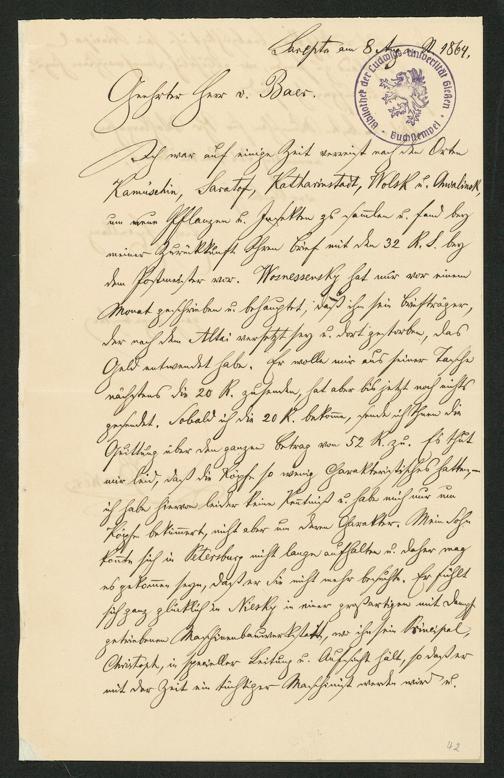 Sarepta am 8 Aug. 1864.
Bibliothek der Ludwigs-Universität Gießen
Buchstempel
Geehrter Herr v. Baer.
Ich war auf einige Zeit verreist nach den Orten
Kamüschin, Saratof, Katharinstadt, Wolsk u. Awalinsk,
um neue Pflanzen u. Insekten zu sam̄len u. fand bey
meiner Zurückkunft Ihren Brief mit den 32 R. S. bey
dem Postmeister vor. Wosnessensky hat mir vor einem
Monat geschrieben u. behauptet, daß ihm sein Briefträger,
der nach dem Altai versetzt sey u. dort gestorben, das
Geld entwendet habe. Er wolle mir aus seiner Tasche
nächstens die 20 R. zusenden, hat aber bis jetzt noch nichts
gesendet. Sobald ich die 20 R. bekom̄e, sende ich Ihnen die
Quittung über den ganzen Betrag von 52 R. zu. Es thut
mir leid, daß die Köpfe so wenig Charakteristisches hatten, –
ich habe hiervon leider keine Ken̄tniß u. habe mich nur um
Köpfe bekümmert, nicht aber um deren Charakter. Mein Sohn
kon̄te sich in Petersburg nicht lange aufhalten u. daher mag
es gekom̄en seyn, daß er Sie nicht mehr besuchte. Er fühlt
sich ganz glücklich in Niesky in einer großartigen mit Dampf
getriebenen Maschinenbauwerkstatt, wo ihn sein Prinzipal,
Christoph, in specieller Leitung u. Aufsicht hält, so daß er
mit der Zeit ein tüchtiger Maschinist werden wird u.
42